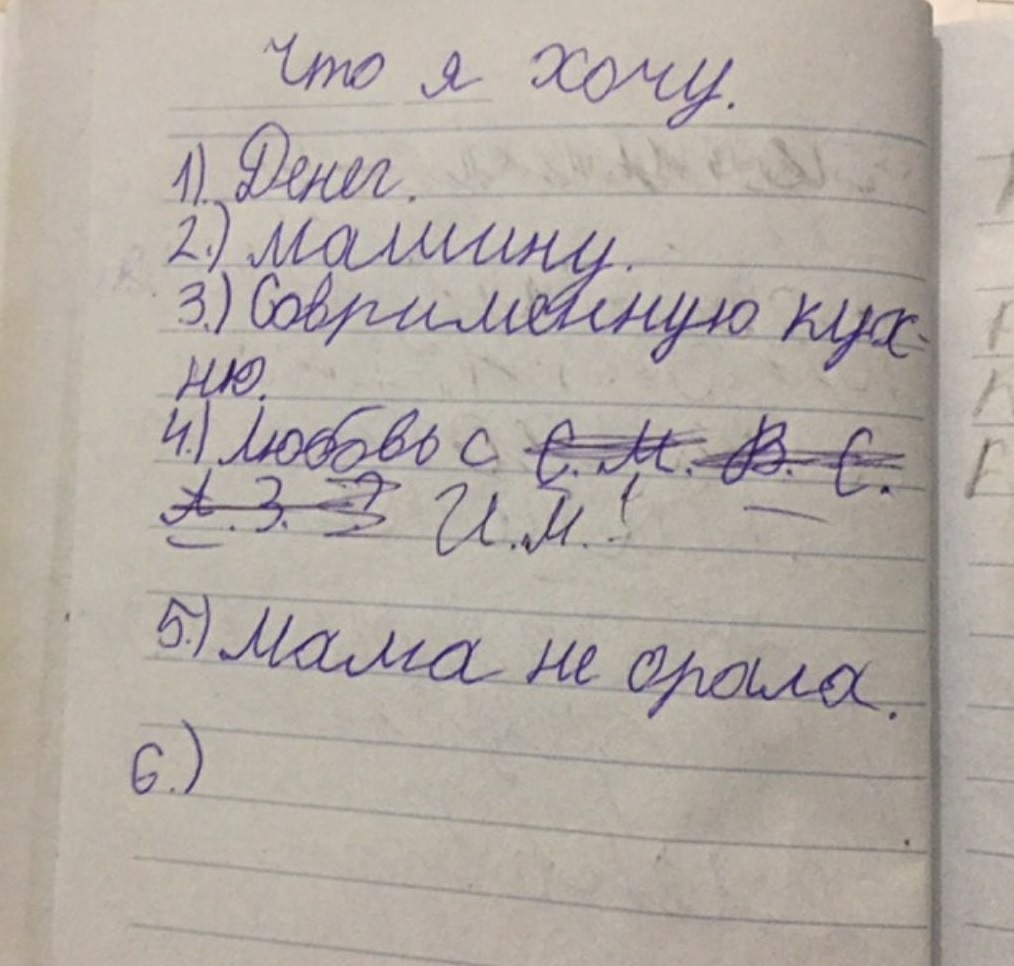 Что я хочу.
1). Денег.
2.) Машину.
3.) Соврименную кух-
ню.
4.) Любовь с С. М. В. С.
А. З. И.М.!
5.) Мама не орала.
6.)